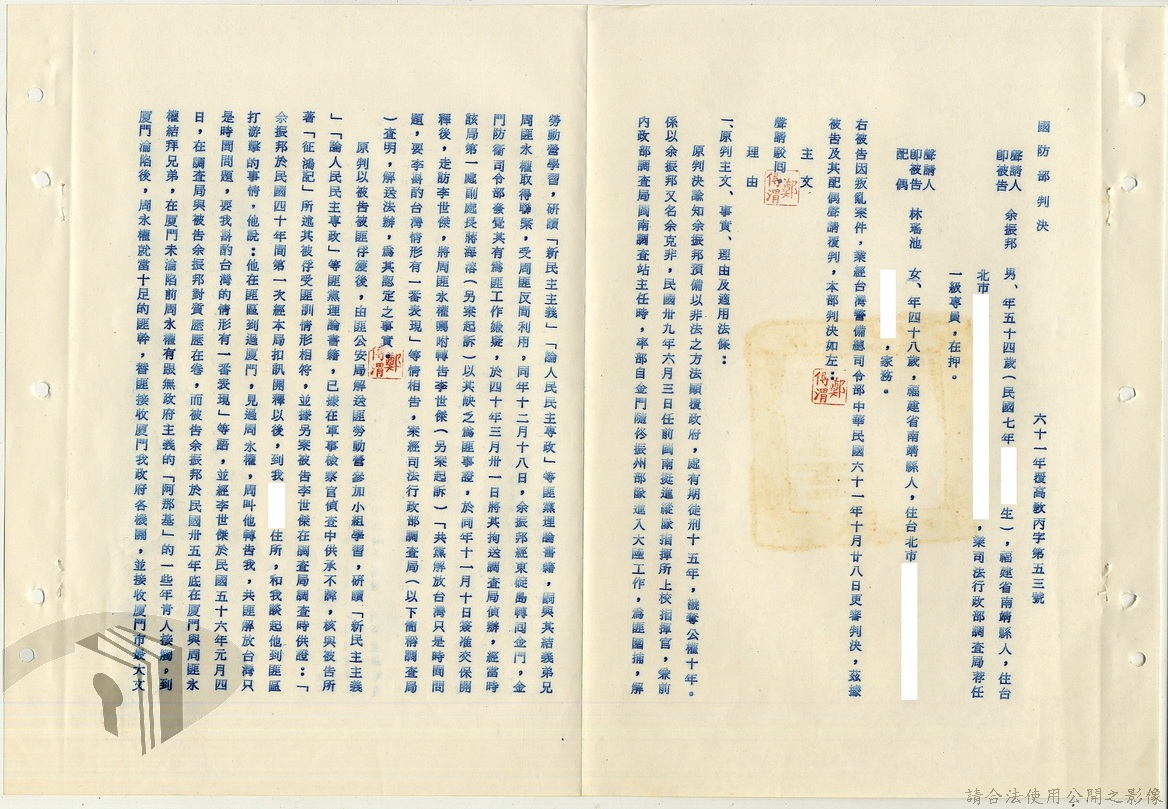 國防部判決
六十一年覆高敦丙字第五三號
聲請人
即被告 余振邦 男、年五十四歲(民國七年 生),福建省南靖縣人,住台
北市 ,業司法行政部調查局荐任
一級專員,在押。
聲請人
即被告
配偶 林瑤池 女、年四十八歲,福建省南靖縣人,住台北市
,家務。
右被告因叛亂案件,業經台灣警備總司令部中華民國六十一年十月廿八日更審判決,茲據
被告及其配偶聲請覆判,本部判決如左:
主文
聲請駁回。
理由
一、原判主文、事實、理由及適用法條:
原判決諭知余振邦預備以非法之方法顛覆政府,處有期徒刑十五年,褫奪公權十年。
係以余振邦又名余克非,民國卅九年六月三日任前閩南挺進縱隊指揮所上校指揮官,兼前
內政部調查局閩南調查站主任時,率部自金門隨佟振州部隊進入大陸工作,為匪圍捕,解
勞動營學習,研讀「新民主主義」「論人民民主專政」等匪黨理論書籍,嗣與其結義弟兄
周匪永權取得聯繫,受周匪反間利用,同年十二月十八日,余振邦經東碇島轉回金門,金
門防衛司令部發覺其有為匪工作嫌疑,於四十年三月卅一日將其拘送調查局偵辦,經當時
該局第一處副處長蔣海溶(另案起訴)以其缺乏為匪事證,於同年十一月十日簽准交保開
釋後,走訪李世傑,將周匪永權囑咐轉告李世傑(另案起訴)「共黨解放台灣只是時間問
題,要李斟酌台灣情形有一番表現」等情相告,案經司法行政部調查局(以下簡稱調查局
)查明,解送法辦,為其認定之事實。
原判以被告被匪俘獲後,由匪公安局解送匪勞動營參加小組學習,研讀「新民主主義
」「論人民民主專政」等匪黨理論書籍,已據在軍事檢察官偵查中供承不諱,核與被告所
著「征鴻記」所述其被俘受匪訓情形相符,並據另案被告李世傑在調查局調查時供證:「
余振邦於民國四十年間第一次經本局扣訊開釋以後,到我 住所,和我談起他到匪區
打游擊的事情,他說:他在匪區到過廈門,見過周永權,周叫他轉告我,共匪解放台灣只
是時間問題,要我斟酌台灣的情形有一番表現」等語,並經李世傑於民國五十六年元月四
日,在調查局與被告余振邦對質歷歷在卷,而被告余振邦於民國卅五年底在廈門與周匪永
權結拜兄弟,在廈門未淪陷前周永權有跟無政府主義的「阿那基」的一些年青人接觸,到
廈門淪陷後,周永權就當十足的匪幹,替匪接收廈門我政府各機關,並接收廈門市最大文
請合法使用公開之影像